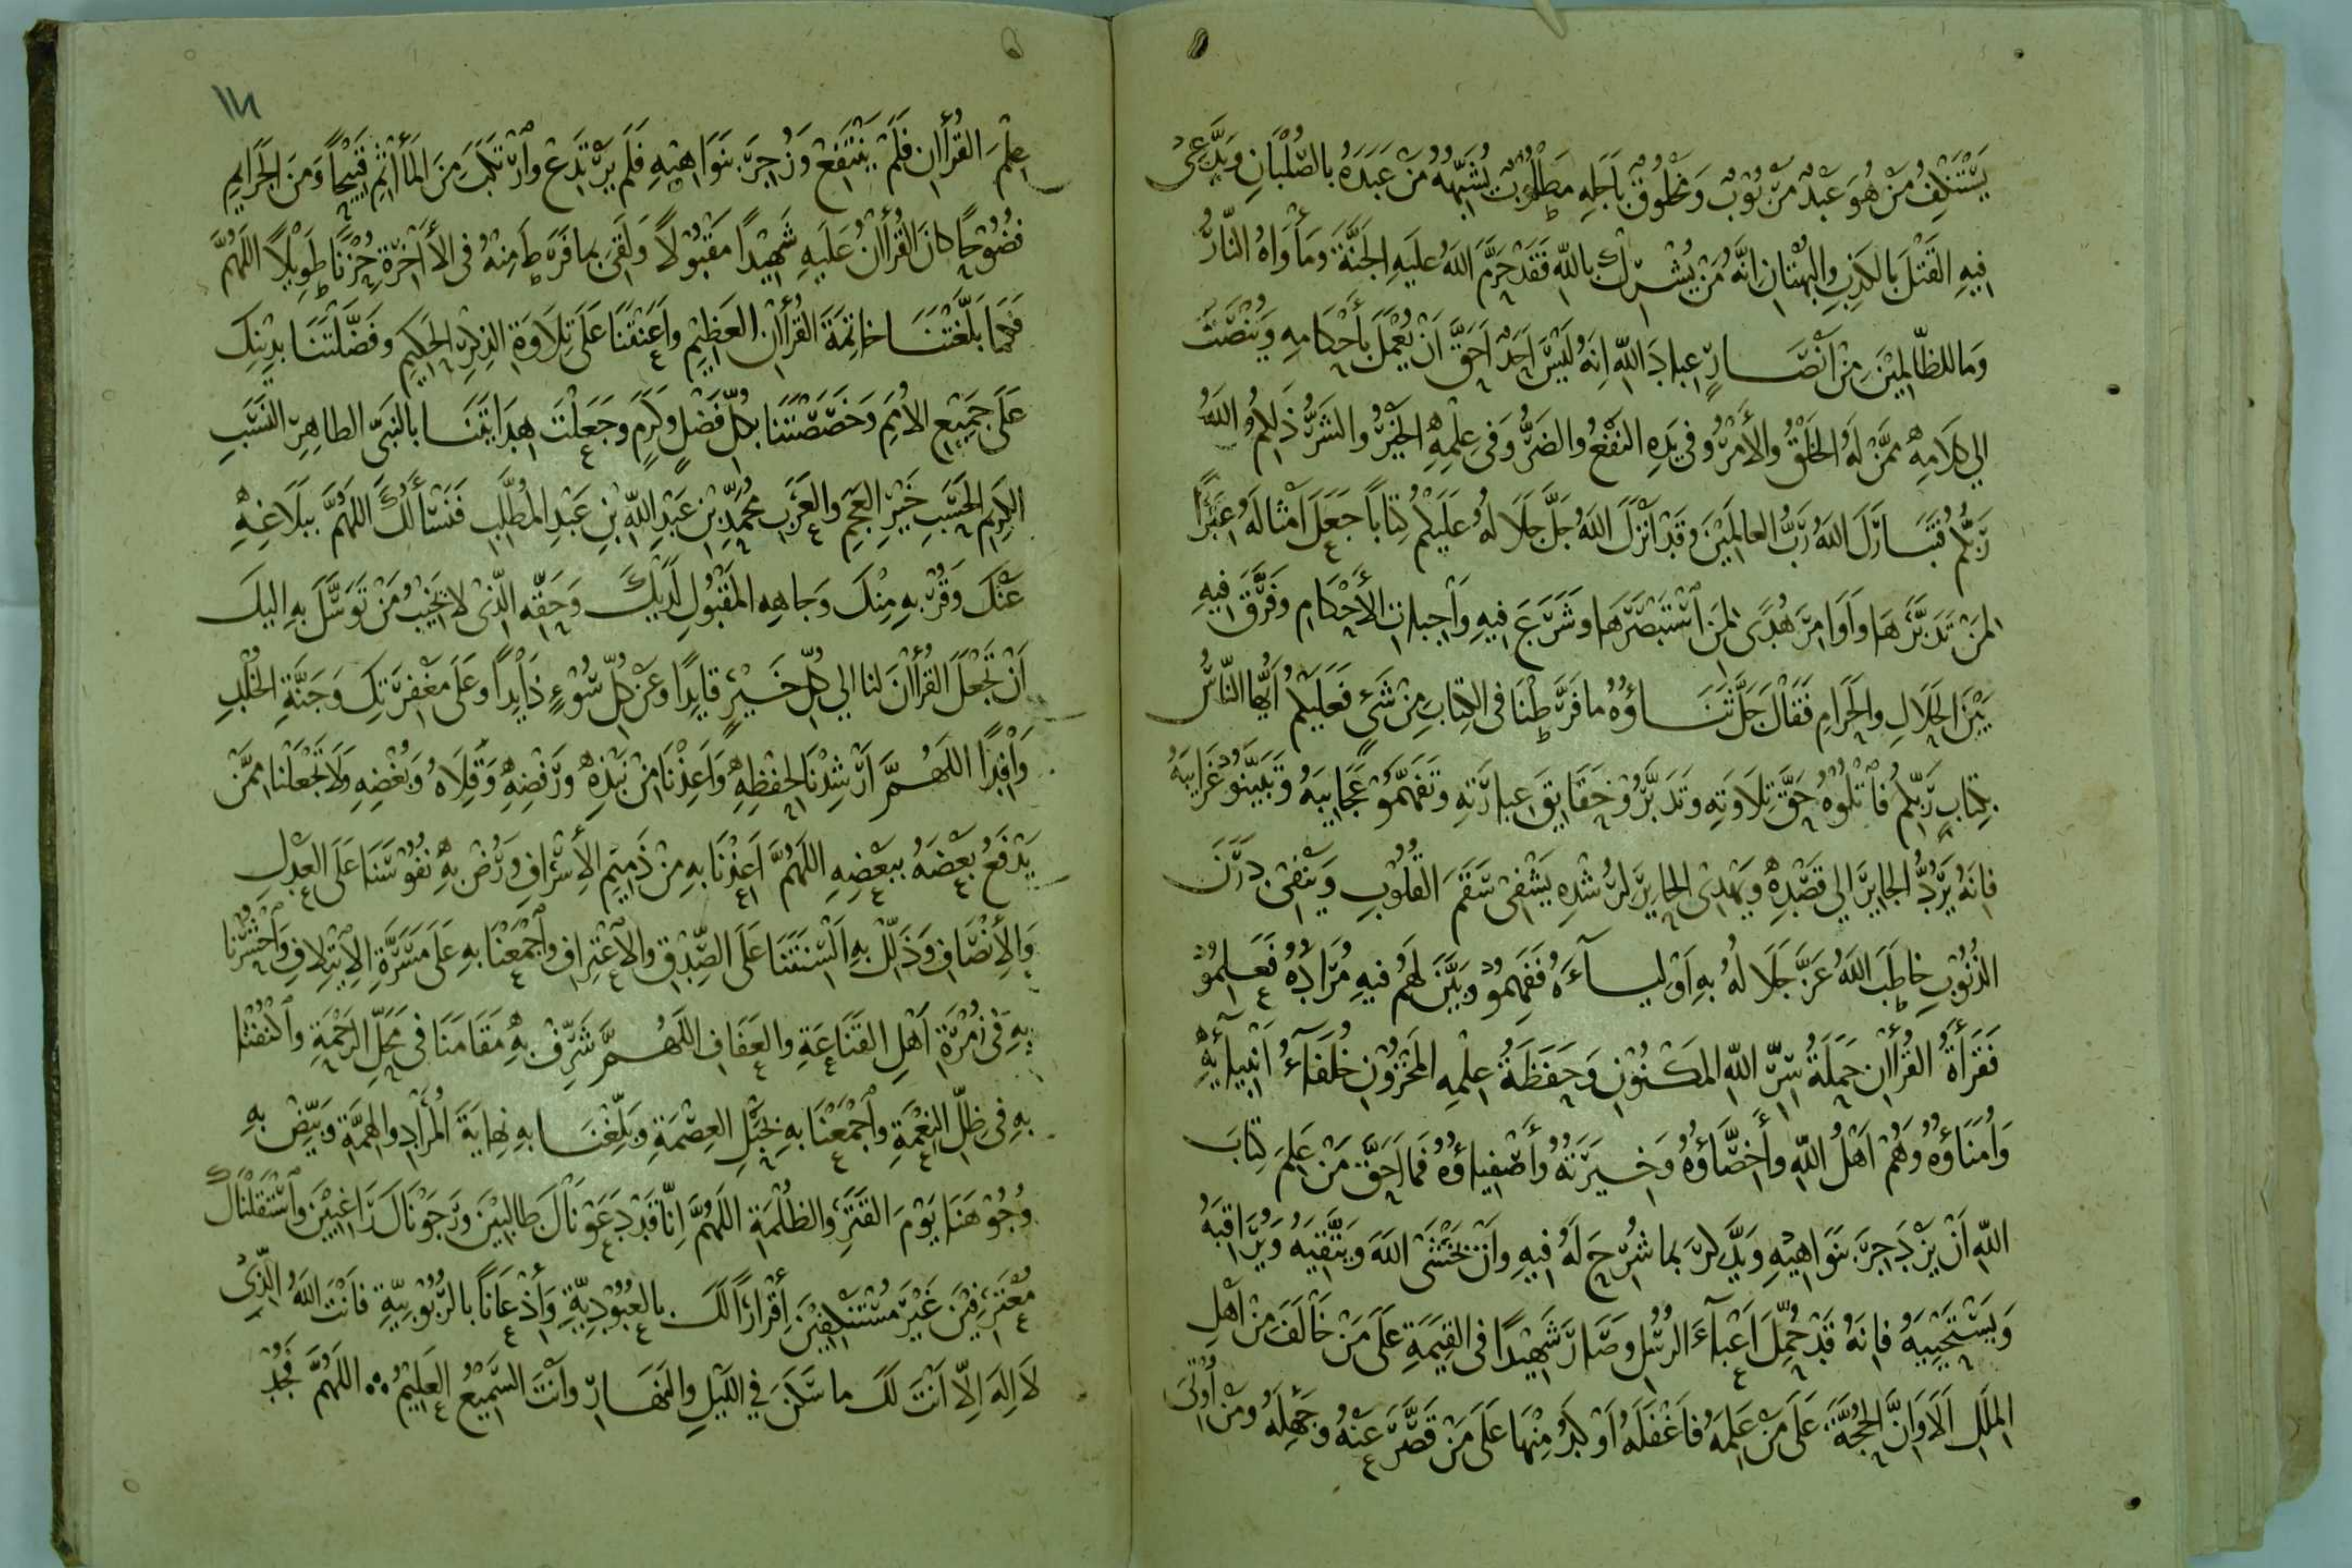 يَسْتَنْكِفُ مَنْ هُوَ عَبْدٌ مَرْبُوْبٌ وَمَخْلُوْقٌ بِاَجَلِهِ مَطْلُوْبٌ يُشَبِّهُهُ مَنْ عَبَدَهُ بِالصُّلْبَانِ وَيَدَّعِىْ
فِيهِ القَتْلَ بِالكَذِبِ وَالبُهْتَانِ اِنَّهُ مَنْ يُشْرِكْ بِاللهِ فَقَدْ حَرَّمَ اللهُ عَلَيهِ الجَنَّةَ وَمَأْوَاهُ النَّارُ
وَمَا لِلظَّالِمِيْنَ مِنْ اَنْصَارٍ عِبادَ اللهِ اِنَّهُ لَيْسَ اَحَدٌ اَحَقَّ اَنْ يُعْمَلَ بِأَحْكَامِهِ وَيُنْصَتَ
اِلي كَلَامِهِ مِمَّنْ لَهُ الخَلْقُ وَالأَمْرُ وَفي يَدِهِ النَفْعُ وَالضَرُّ وَفى عِلْمِهِ الخَيْرُ وَالشَرُّ ذٰلِكُمُ اللهُ
رَبُّكُمْ فَتَبَارَكَ اللهُ رَبُّ العالَمِيْنَ وَقَدْ اَنْزَلَ اللهُ جَلَّ جَلَالُهُ عَلَيْكُمْ كِتَاباً جَعَلَ اَمْثالَهُ عِبَرًا
لِمَنْ تَدَبَّرَهَا وَاَوَامِرَهُ هُدًى لِمَنِ اسْتَبْصَرَهَا وَشَرَعَ فِيهِ وَاجِباتِ الأَحْكَامِ وَفَرَّقَ فِيهِ
بَيْنَ الحَلَالِ وَالحَرَامِ فَقَالَ جَلَّ ثَنَاؤُهُ مَا فَرَّطْنَا فى الكِتَابِ مِنْ شَىءٍ فَعَلَيْكُمْ اَيُّهَا النَّاسُ
بِكِتَابِ رَبِّكُمْ فَاتْلُوْهُ حَقَّ تِلَاوَتِهِ وَتَدَبَّرُوْ حَقَايِقَ عِبارَتِهِ وَتَفَهَّمُوْ عَجَايِبَهُ وَتَبَيَّنُوْ غَرَايِبَهُ
فَاِنَّهُ يَرُدُّ الجَايِرَ اِلي قَصْدِهِ وَيَهْدِى الحَايِرَ لِرُشْدِهِ يَشْفِى سَقَمَ القُلُوْبِ وَيَنْفِىْ دَرَنَ
الذُنُوْبِ خَاطَبَ اللهُ عَزَّ جَلَالُهُ بِهِ اَوْلِيآءَهُ فَفَهِمُوْ وَبَيَّنَ لَهُمْ فِيهِ مُرَادَهُ فَعَلِمُوْ
فَقَرَأَةُ القُرْأٰنِ حَمَلَةُ سِرِّ اللهِ المَكْنُوْنِ وَحَفَظَةُ عِلْمِهِ المَخْزُوْنِ خُلَفَآءُ اَنْبِيآئِهِ
وَاُمَنَاؤُهُ وَهُمْ اَهْلُ اللهِ وَأَخِصَّاؤُهُ وَخِيَرَتُهُ وَأَصْفِياؤُهُ فَمَا اَحَقَّ مَنْ عَلِمَ كِتَابَ
اللهِ اَنْ يَزْدَجِرَ بِنَوَاهِيْهِ وَيَدَّكِرَ بِمَا شُرِحَ لَهُ فِيهِ وَاَنْ يَخْشَى اللهَ وَيَتَّقِيَهُ وَيُرَاقِبَهُ
وَيَسْتَحْيِيَهُ فَاِنَّهُ قَدْ حُمِّلَ اَعْبآءَ الرُسُلِ وَصَارَ شَهِيْدًا فى القِيٰمَةِ عَلَى مَنْ خَالَفَ مِنْ اَهْلِ
المِلَلِ اَلَا وَاِنَّ الحُجَّةَ عَلَى مَنْ عَلِمَهُ فَاَغْفَلَهُ اَوْكَدُ مِنْهَا عَلَى مَنْ قَصَّرَ عَنْهُ وَجَهِلَهُ وَمَنْ اُوْتِىَ
عِلْمَ القُرْأٰنِ فَلَمْ يَنْتَفِعْ وَزُجِرَ بِنَوَاهِيْهِ فَلَمْ يَرْتَدِعْ وَارْتَكَبَ مِنَ المَأٰثِمِ قَبِيْحًا وَمِنَ الجَرَايِمِ
فَضُوْحًا كَانَ القُرْأٰنُ عَلَيهِ شَهِيْدًا مَقْبُوْلًا وَلَقِىَ بِمَا فَرَّطَ مِنْهُ فى الأٰخِرَةِ حُزْنًا طَوِيْلًا اللّهُمَّ
فَكَمَا بَلَّغْتَنَا خَاتِمَةَ القُرْأٰنِ العَظِيْمِ وَاَعَنْتَنَا عَلَى تِلَاوَةِ الذِكْرِ الحَكِيمِ وَفَضَّلْتَنَا بِدِيْنِكَ
عَلَى جَمِيْعِ الاُمَمِ وَخَصَّصْتَنَا بِكُلِّ فَضْلٍ وَكَرَمٍ وَجَعَلْتَ هِدَايَتَنَا بِالنَبِىِّ الطاهِرِ النَسَبِ
الكَرِيْمِ الحَسَبِ خَيْرِ العَجَمِ وَالعَرَبِ مُحَمَّدِ بْنِ عَبْدِ اللهِ بْنِ عَبْدِ المُطَّلِبِ فَنَسْأَلُكَ اللّهُمَّ بِبَلَاغِهِ
عَنْكَ وَقُرْبِهِ مِنْكَ وَجَاهِهِ المَقْبُولِ لَدَيْكَ وَحَقِّهِ الَّذِىْ لَا يَخِيْبُ مَنْ تَوَسَّلَ بِهِ اِلَيكَ
اَنْ تَجْعَلَ القُرْأٰنَ لَنَا اِلي كُلِّ خَيْرٍ قَايِدًا وَعَنْ كُلِّ سُوْءٍ ذَايِدًا وَعَلَى مَغْفِرَتِكَ وَجَنَّةِ الخُلْدِ
وَافِدًا اللّهُمَّ اَرْشِدْنَا لِحِفْظِهِ وَاَعِذْنَا مِنْ نَبْذِهِ وَرَفْضِهِ وَقِلَاهُ وَبُغْضِهِ وَلَا تَجْعَلْنَا مِمَّنْ
يَدْفَعُ بَعْضَهُ بِبَعْضِهِ اللّهُمَّ اَعِذْنَا بِهِ مِنْ ذَمِيْمِ الأَسْرَافِ وَرُضْ بِهِ نُفُوْسَنَا عَلَى العَدْلِ
وَالأِنْصَافِ وَذَلِّلْ بِهِ اَلْسِنَتَنَا عَلَى الصِّدْقِ وَالأِعْتِرَافِ وَاَجْمِعْنَا بِهِ عَلَى مَسَرَّةِ الاِيْتِلَافِ وَاحْشُرْنَا
بِهِ فى زُمْرَةِ اَهْلِ القَنَاعَةِ وَالعَفَافِ اللّهُمَّ شَرِّفْ بِهِ مَقَامَنَا فى مَحَلِّ الرَحْمَةِ وَاكْنُفْنَا
بِهِ فى ظِلِّ النِعْمَةِ وَاَجْمِعْنَا بِهِ بِحَبْلِ العِصْمَةِ وَبَلِّغْنَا بِهِ نِهَايَةَ المُرَادِ وَالهِمَّةِ وَبَيِّضْ بِهِ
وُجُوْهَنَا يَوْمَ القَتَرِ وَالظُلْمَةِ اللّهُمَّ اِنَّا قَدْ دَعَوْنَاكَ طَالِبِيْنَ وَرَجَوْنَاكَ رَاغِبِيْنَ وَاسْتَقَلْنَاكَ
مُعْتَرِفِيْنَ غَيْرَ مُسْتَنْكِفِيْنَ أِقْرَارًا لَكَ بِالعُبُوْدِيَّةِ وَأِذْعَانًا بِالرُبُوْبِيَّةِ فَاَنْتَ اللهُ الَّذِىْ
لَا اِلٰهَ اِلَّا اَنْتَ لَكَ مَا سَكَنَ فِي اللَيلِ وَالنَهَارِ وَاَنْتَ السَّمِيْعُ العَلِيْمُ اللّهُمَّ فَجُدْ